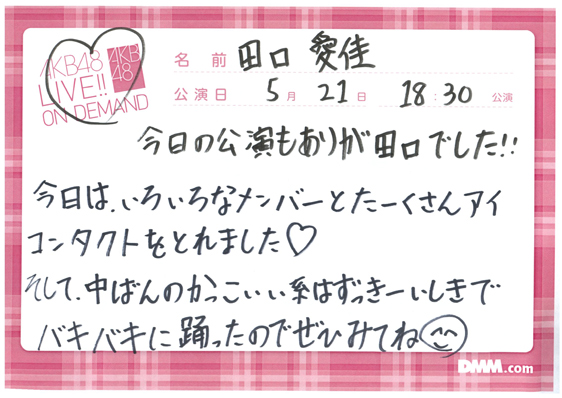 AKB48
LIVE!!
ON DEMAND
AKB
48
名 前 田口 愛佳
公演日 5月 21日 18:30 公演
今日の公演もありが田口でした!!
今日は、いろいろなメンバーとたーくさんアイ
コンタクトをとれました♡
そして、中ばんのかっこいい系はずっきーいしきで
バキバキに踊ったのでぜひみてね
DMM.com